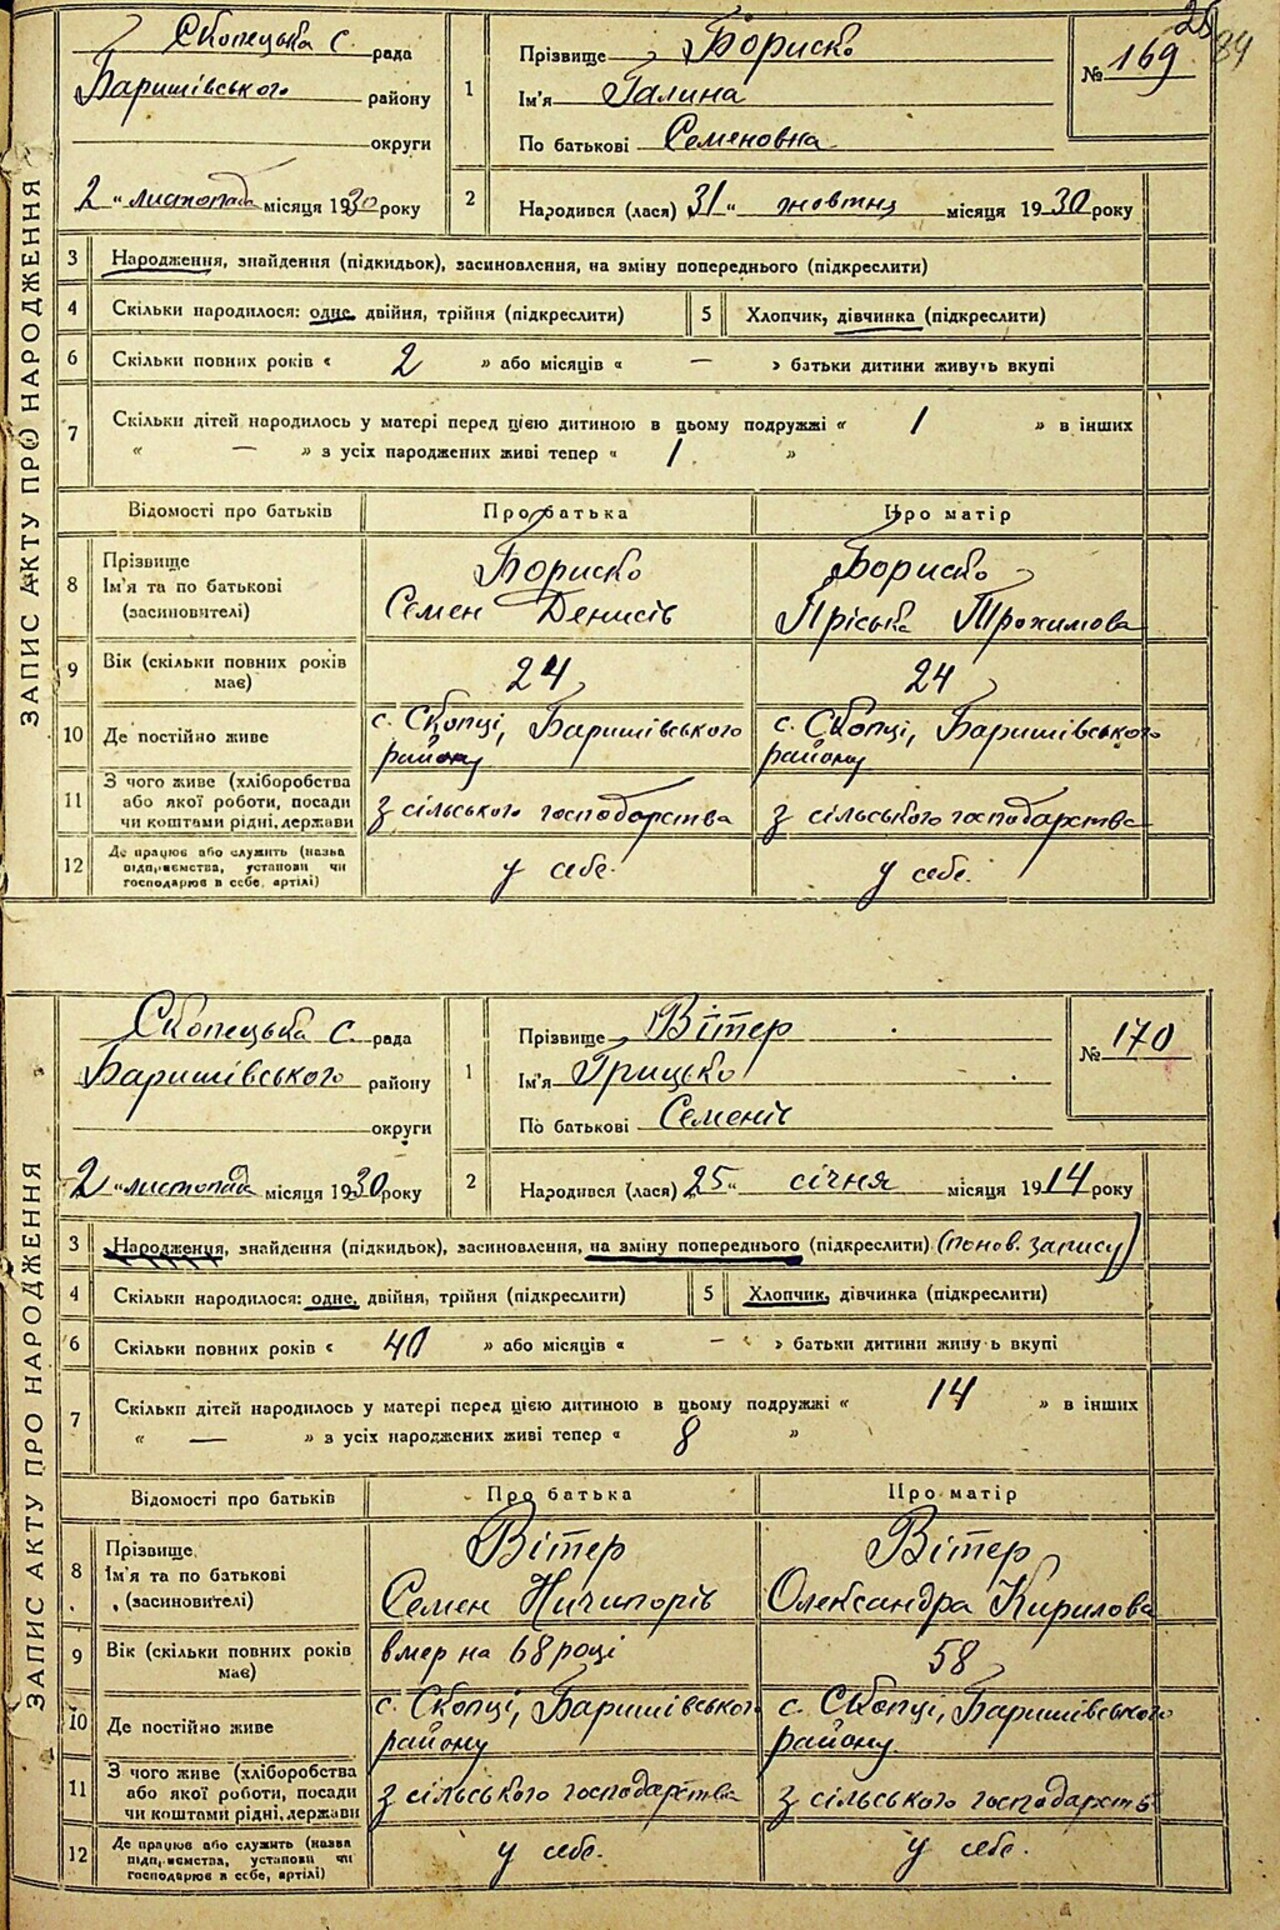 25
84
ЗАПИС АКТУ ПРО НАРОДЖЕННЯ
Скопецька с. рада
Баришівського району
округи
2 „ листопада місяця 1930 року
1
Прізвище Бориско
Ім'я Галина
По батькові Семеновна
№ 169
2
Народився (лася) 31 „ жовтня місяця 1930 року
3 Народження, знайдення (підкидьок), засиновлення, на зміну попереднього (підкреслити)
4 Скільки народилося: одне, двійня, трійня (підкреслити)
5 Хлопчик, дівчинка (підкреслити)
6 Скільки повних років « 2 » або місяців « — » батьки дитини живуть вкупі
7 Скільки дітей народилось у матері перед цією дитиною в цьому подружжі « 1 » в інших
« — » з усіх народжених живі тепер « 1 »
Відомості про батьків Про батька Про матір
8 Прізвище
Ім'я та по батькові
(засиновителі)
Бориско
Семен Денисів
Бориско
Пріська Трохимова
9 Вік (скільки повних років
має)
24
24
10 Де постійно живе
с. Скопці, Баришівського
району
с. Скопці, Баришівського
району
11 З чого живе (хліборобства
або якої роботи, посади
чи коштами рідні, держави
з сільського господарства
з сільського господарства
12 Де працює або служить (назва
підприємства, установи чи
господарює в себе, артілі)
у себе.
у себе.
ЗАПИС АКТУ ПРО НАРОДЖЕННЯ
Скопецька с. рада
Баришівського району
округи
2 „ листопада місяця 1930 року
1
Прізвище Вітер
Ім'я Грицько
По батькові Семеніч
№ 170
2
Народився (лася) 25 „ січня місяця 1914 року
3 Народження, знайдення (підкидьок), засиновлення, на зміну попереднього (підкреслити) (понов. запису)
4 Скільки народилося: одне, двійня, трійня (підкреслити)
5 Хлопчик, дівчинка (підкреслити)
6 Скільки повних років « 40 » або місяців « — » батьки дитини живу ь вкупі
7 Скільки дітей народилось у матері перед цією дитиною в цьому подружжі « 14 » в інших
« — » з усіх народжених живі тепер « 8 »
Відомості про батьків Про батька Про матір
8 Прізвище
Ім'я та по батькові
(засиновителі)
Вітер
Семен Ничипорів
Вітер
Олександра Кирилова
9 Вік (скільки повних років
має)
вмер на 68 році
58
10 Де постійно живе
с. Скопці, Баришівського
району
с. Скопці, Баришівського
району
11 З чого живе (хліборобства
або якої роботи, посади
чи коштами рідні, держави
з сільського господарства
з сільського господарств
12 Де працює або служить (назва
підприємства, установи чи
господарює в себе, артілі)
у себе.
у себе.